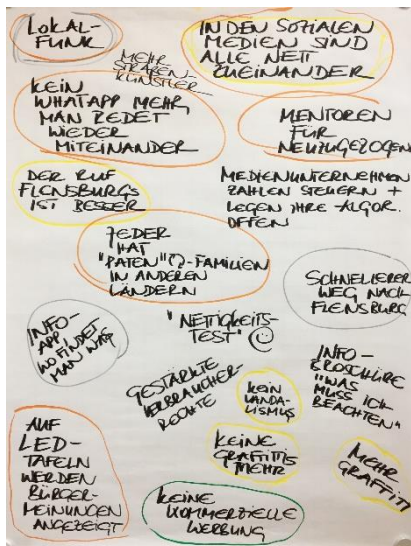 LOKAL-
FUNK
IN DEN SOZIALEN
MEDIEN SIND
ALLE NETT
ZUEINANDER
MEHR
STRAßEN-
KÜNSTLER
KEIN
WHATAPP MEHR,
MAN REDET
WIEDER
MITEINANDER
MENTOREN
FÜR
NEUZUGEZOGENE
DER RUF
FLENSBURGS
IST BESSER
MEDIENUNTERNEHMEN
ZAHLEN STEUERN +
LEGEN IHRE ALGOR.
OFFEN
JEDER
HAT
"PATEN"(?)-FAMILIEN
IN ANDEREN
LÄNDERN
SCHNELLERER
WEG NACH
FLENSBURG
INFO-
APP,
WO FINDET
MAN WAS
"NETTIGKEITS-
TEST"
GESTÄRKTE
VERBRAUCHER-
RECHTE
KEIN
VANDA-
LISMUS
INFO-
BROSCHÜRE
"WAS
MUSS ICH
BEACHTEN"
AUF
LED-
TAFELN
WERDEN
BÜRGER-
MEINUNGEN
ANGEZEIGT
KEINE
GRAFFITIS
MEHR
MEHR
GRAFFITI
KEINE
KOMMERZIELLE
WERBUNG